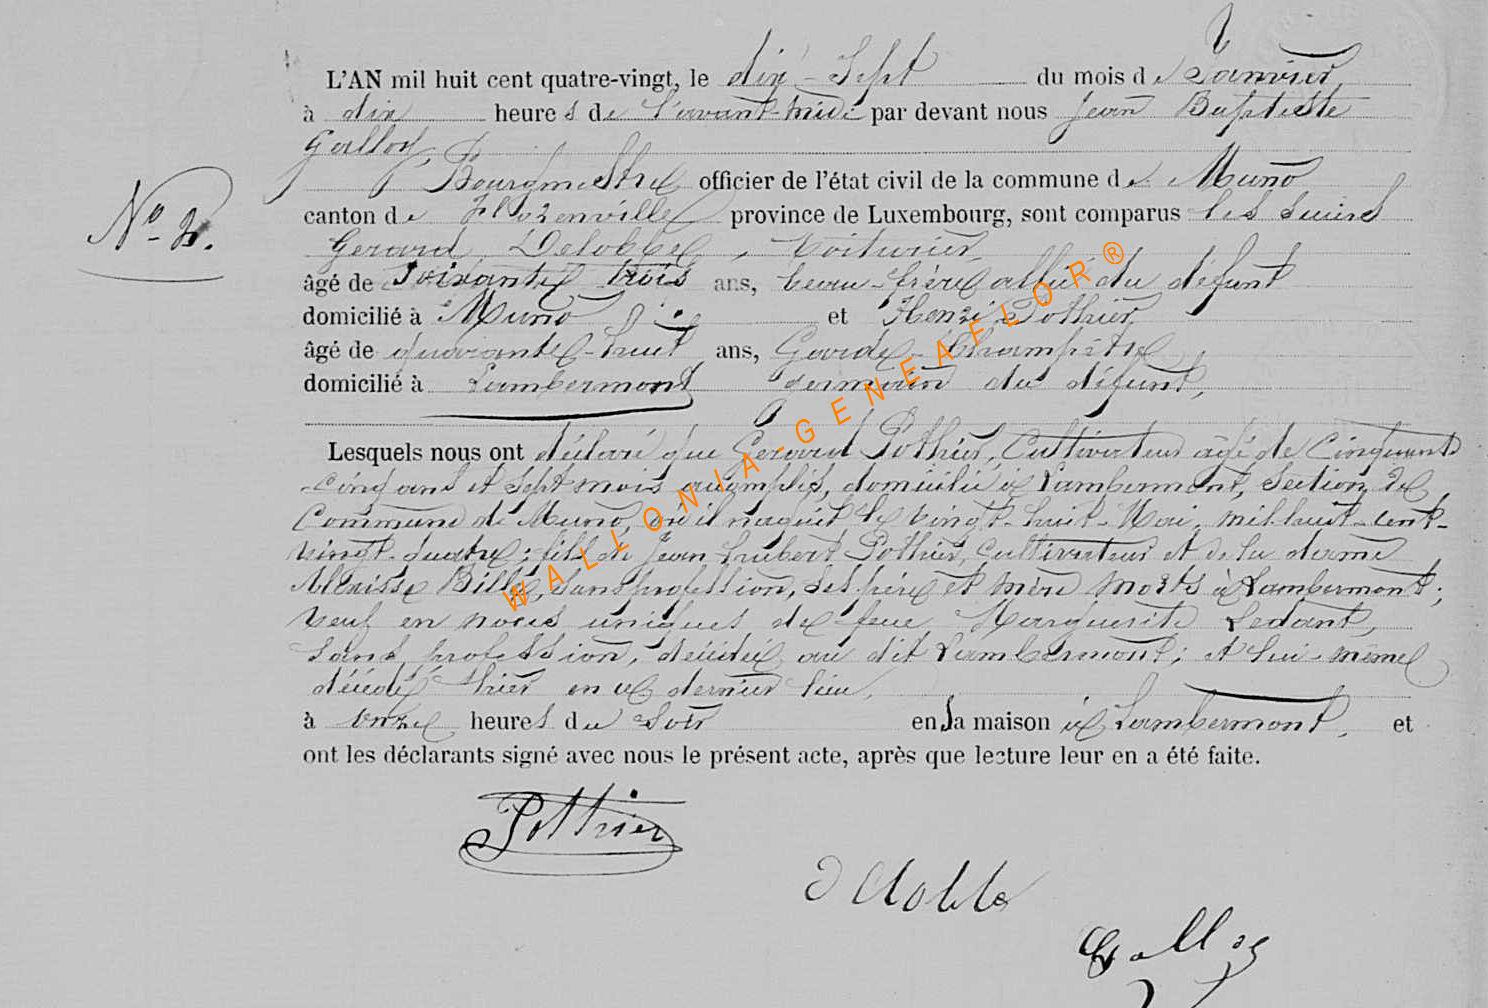 L'AN mil huit cent quatre-vingt, le dix-Sept du mois de Janvier
à dix heures de l'avant-midi par devant nous Jean Baptiste
Galloy,
Bourgmestre officier de l'état civil de la commune de Muno
canton de Florenville province de Luxembourg, sont comparus les sieurs
Gerard Delobbe, voiturier,
âgé de soixante trois ans, beau-frère allié du défunt
domicilié à Muno et Henri Pothier,
âgé de quarante-huit ans, Garde-Champêtre
domicilié à Lambermont germain du défunt,
Lesquels nous ont déclaré que Gerard Pothier, Cultivateur âgé de Cinquante
cinq ans et sept mois accomplis, domicilié à Lambermont, section de
Commune de Muno, où il naquit le vingt-huit-Mai, mil huit-cent-
vingt-quatre; fils de Jean Hubert Pothier, cultivateur et de la dame
Alexisse Bille, sans profession, ses père et mère morts à Lambermont;
veuf en noces uniques de feue Marguerite Ledant,
sans profession, décédée au dit Lambermont; et lui-même
décédé hier en ce dernier lieu,
à onze heures du Soir en sa maison à Lambermont, et
ont les déclarants signé avec nous le présent acte, après que lecture leur en a été faite.
No 2.
Pothier
Galloy
WALLONIA-GENEAFLOR®